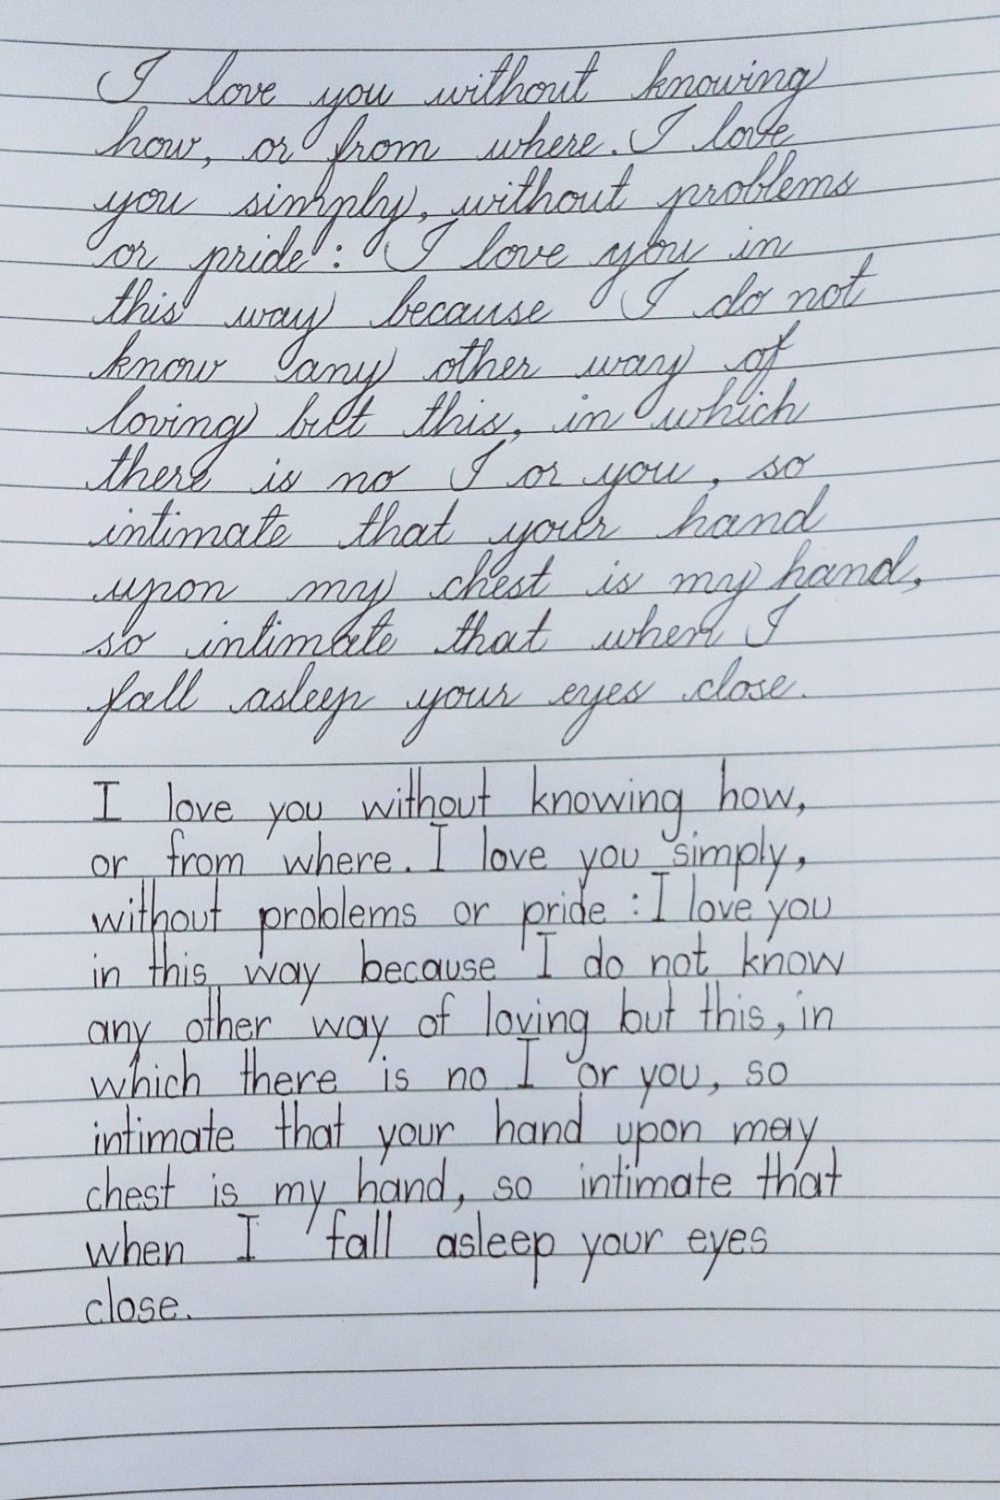 I love you without knowing
how, or from where. I love
you simhply, without problems
or pride: I love you in
this way because I do not
know any other way of
loving but this, in which
there is no I or you, so
intimate that your hand
upon my chest is my hand,
so intimate that when I
fall asleep your eyes close.
I love you without knowing how,
or from where. I love you simply,
without problems or pride: I love you
in this way because I do not know
any other way of loving but this, in
which there is no I or you, so
intimate that your hand upon may
chest is my hand, so intimate that
when I fall asleep your eyes
close.